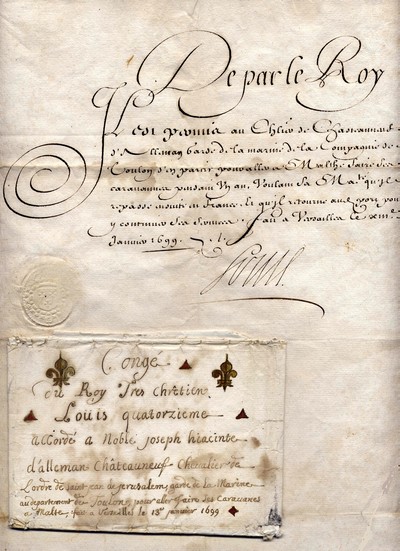 De par le Roy
Il est permis au Chler de Chasteauneuf
d'Alleman garde de la marine de la Compagnie de
Toulon d'en partir pour aller a Malthe faire ses
caravannes pendant un an, Voulant sa Maté qu'il
repasse ensuite en France, et qu'il retourne aud. port pour
y continuer ses services. Fait a Versailles le xiiie
Janvier 1699.
Louis
Congé
du Roy Tres Chrêtien
Louis quatorzieme
accordé a Noble joseph hiacinte
d'alleman Châteauneuf Chevalier de
l'ordre de saint jean de jerusalem, garde de la Marine
au departement de Toulon, pour aler faire ses Caravanes
a Malte, fait a Versailles le 13e janvier 1699